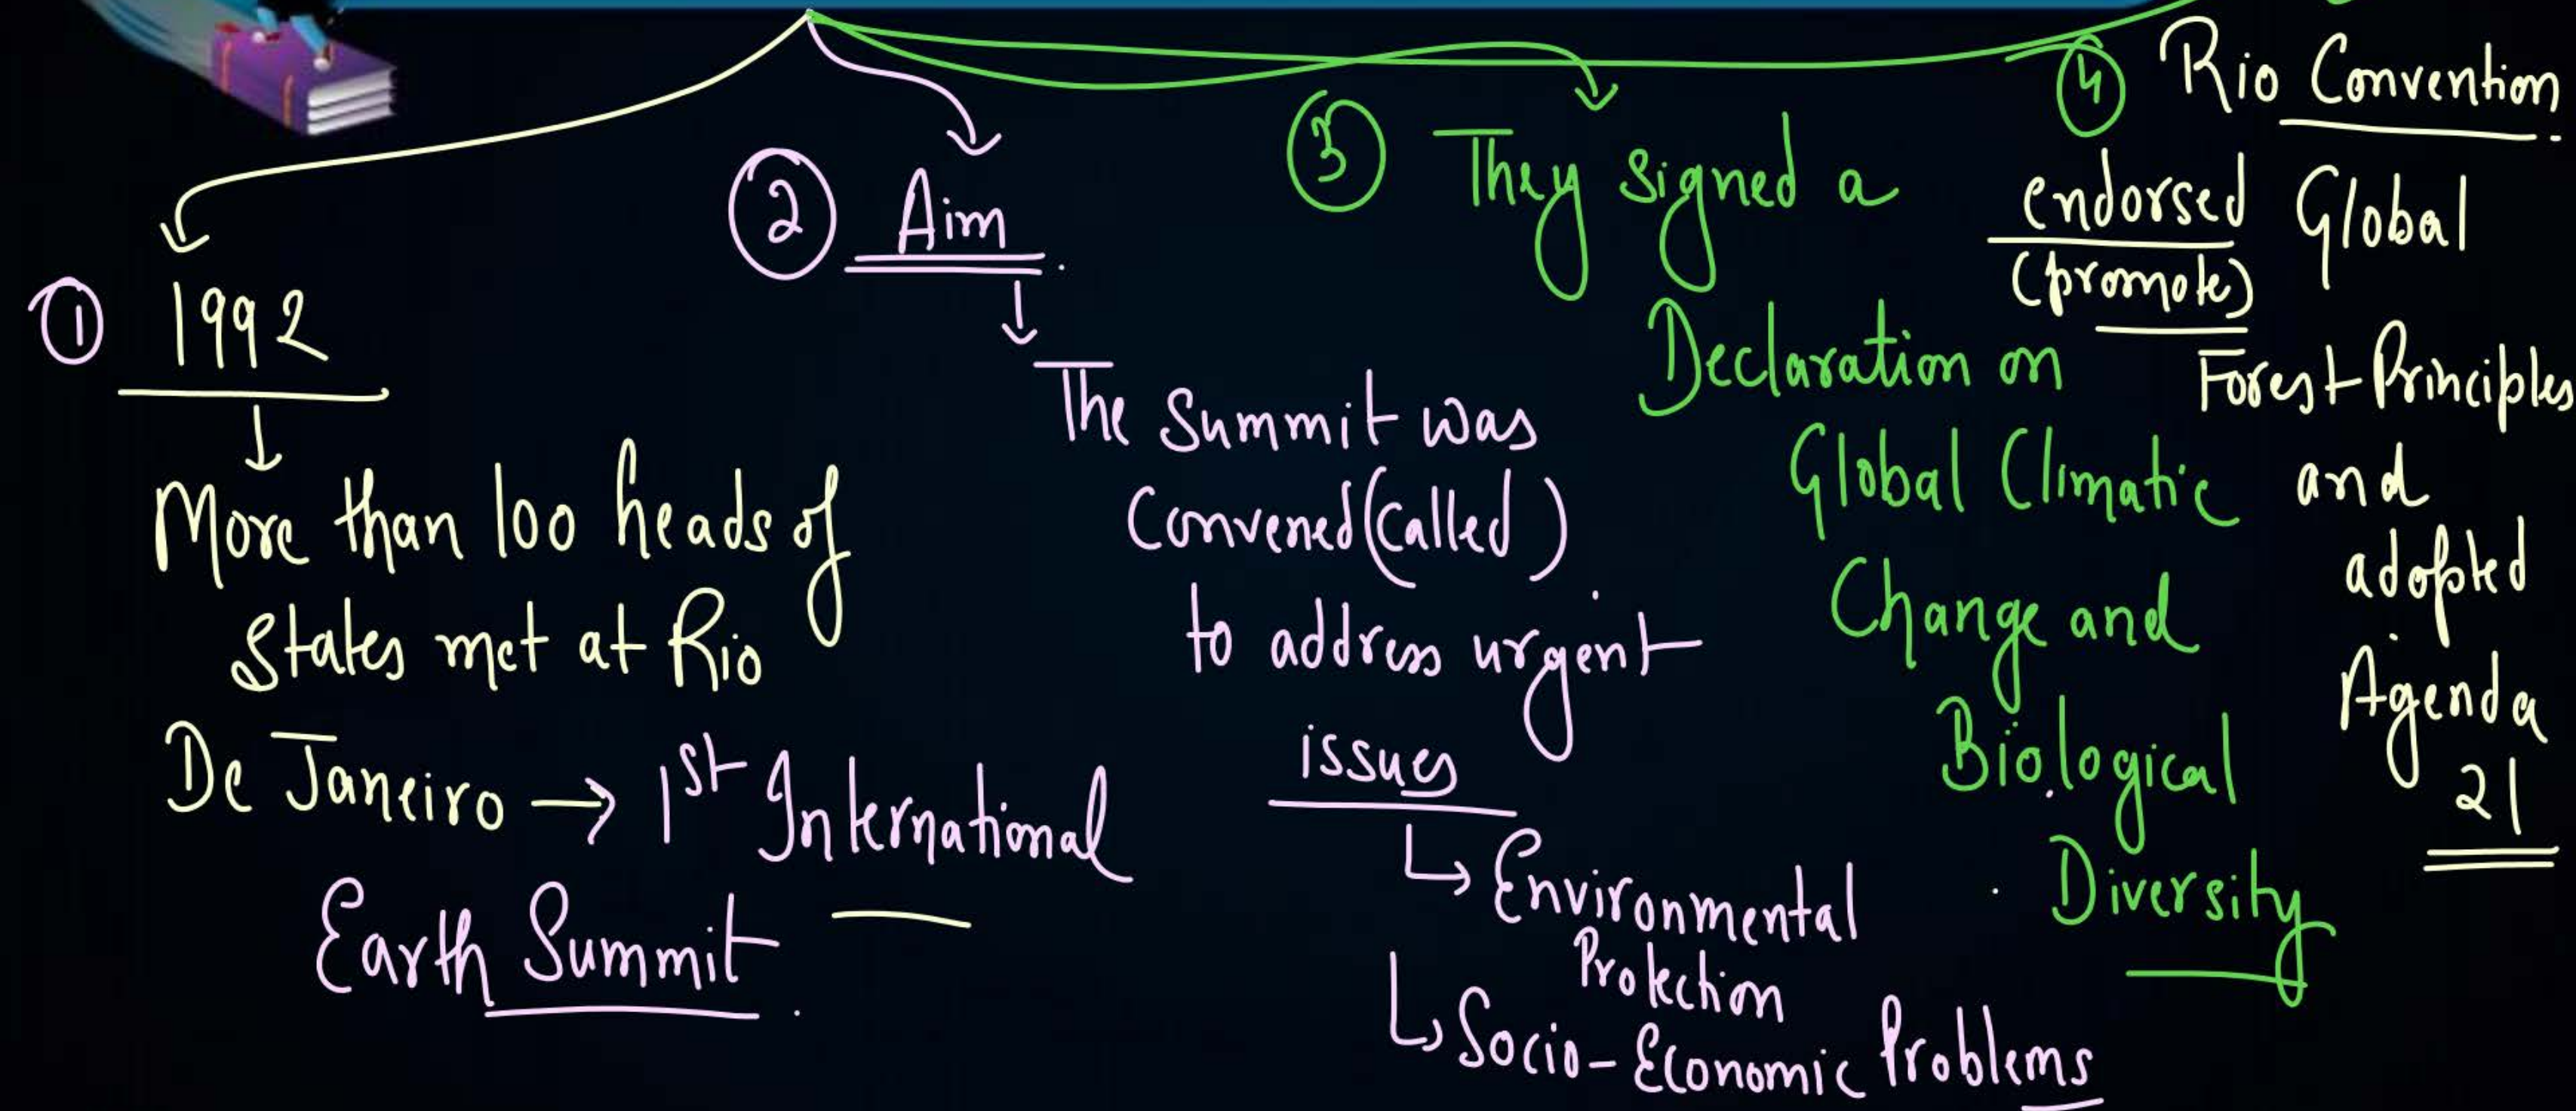 ① 1992
More than 100 heads of
States met at Rio
De Janeiro → 1st International
Earth Summit.
② Aim.
The Summit was
Convened (Called)
to address urgent
issues
↳ Environmental
Protection
↳ Socio-Economic Problems
③ They signed a
Declaration on
Global Climatic
Change and
Biological
Diversity
④ Rio Convention.
endorsed Global
(promote)
Forest Principles
and
adopted
Agenda
21